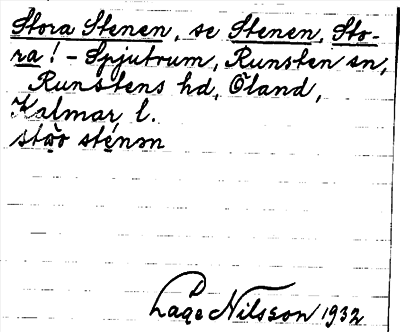 Stora Stenen, se Stenen, Sto-
ra! - Spjutrum, Runsten sn,
Runstens hd, Öland,
Kalmar l.
Lage Nilsson 1932